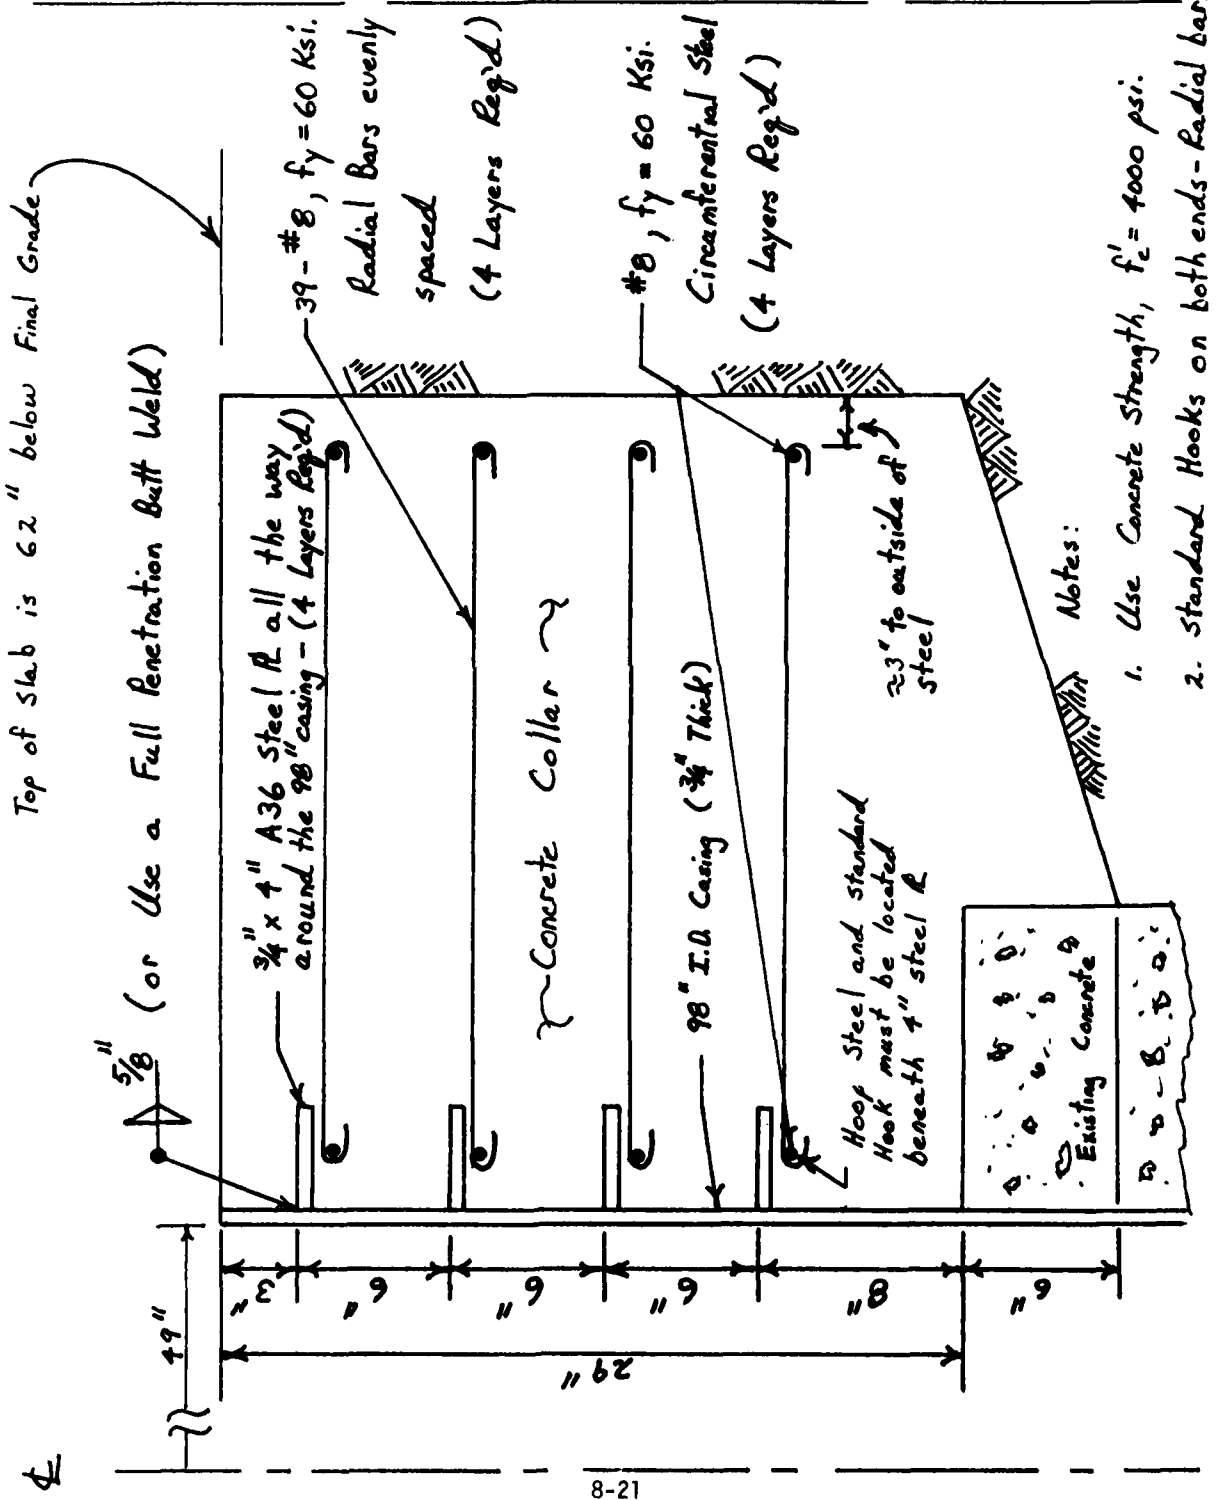 Top of Slab is 62" below Final Grade
5/8" (or Use a Full Penetration Butt Weld)
3/4" x 4" A36 Steel PL all the way
around the 98" casing - (4 Layers Req'd)
39 - #8, fy = 60 Ksi.
Radial Bars evenly
spaced
(4 Layers Req'd)
Concrete Collar
#8, fy = 60 Ksi.
Circumferential Steel
(4 Layers Req'd)
98" I.D. Casing (3/4" Thick)
≈3" to outside of
steel
Hoop Steel and standard
Hook must be located
beneath 4" steel PL
Existing Concrete
Notes:
1. Use Concrete Strength, f'c = 4000 psi.
2. Standard Hooks on both ends - Radial bar
49"
3"
6"
6"
6"
8"
6"
29"
CL
8-21